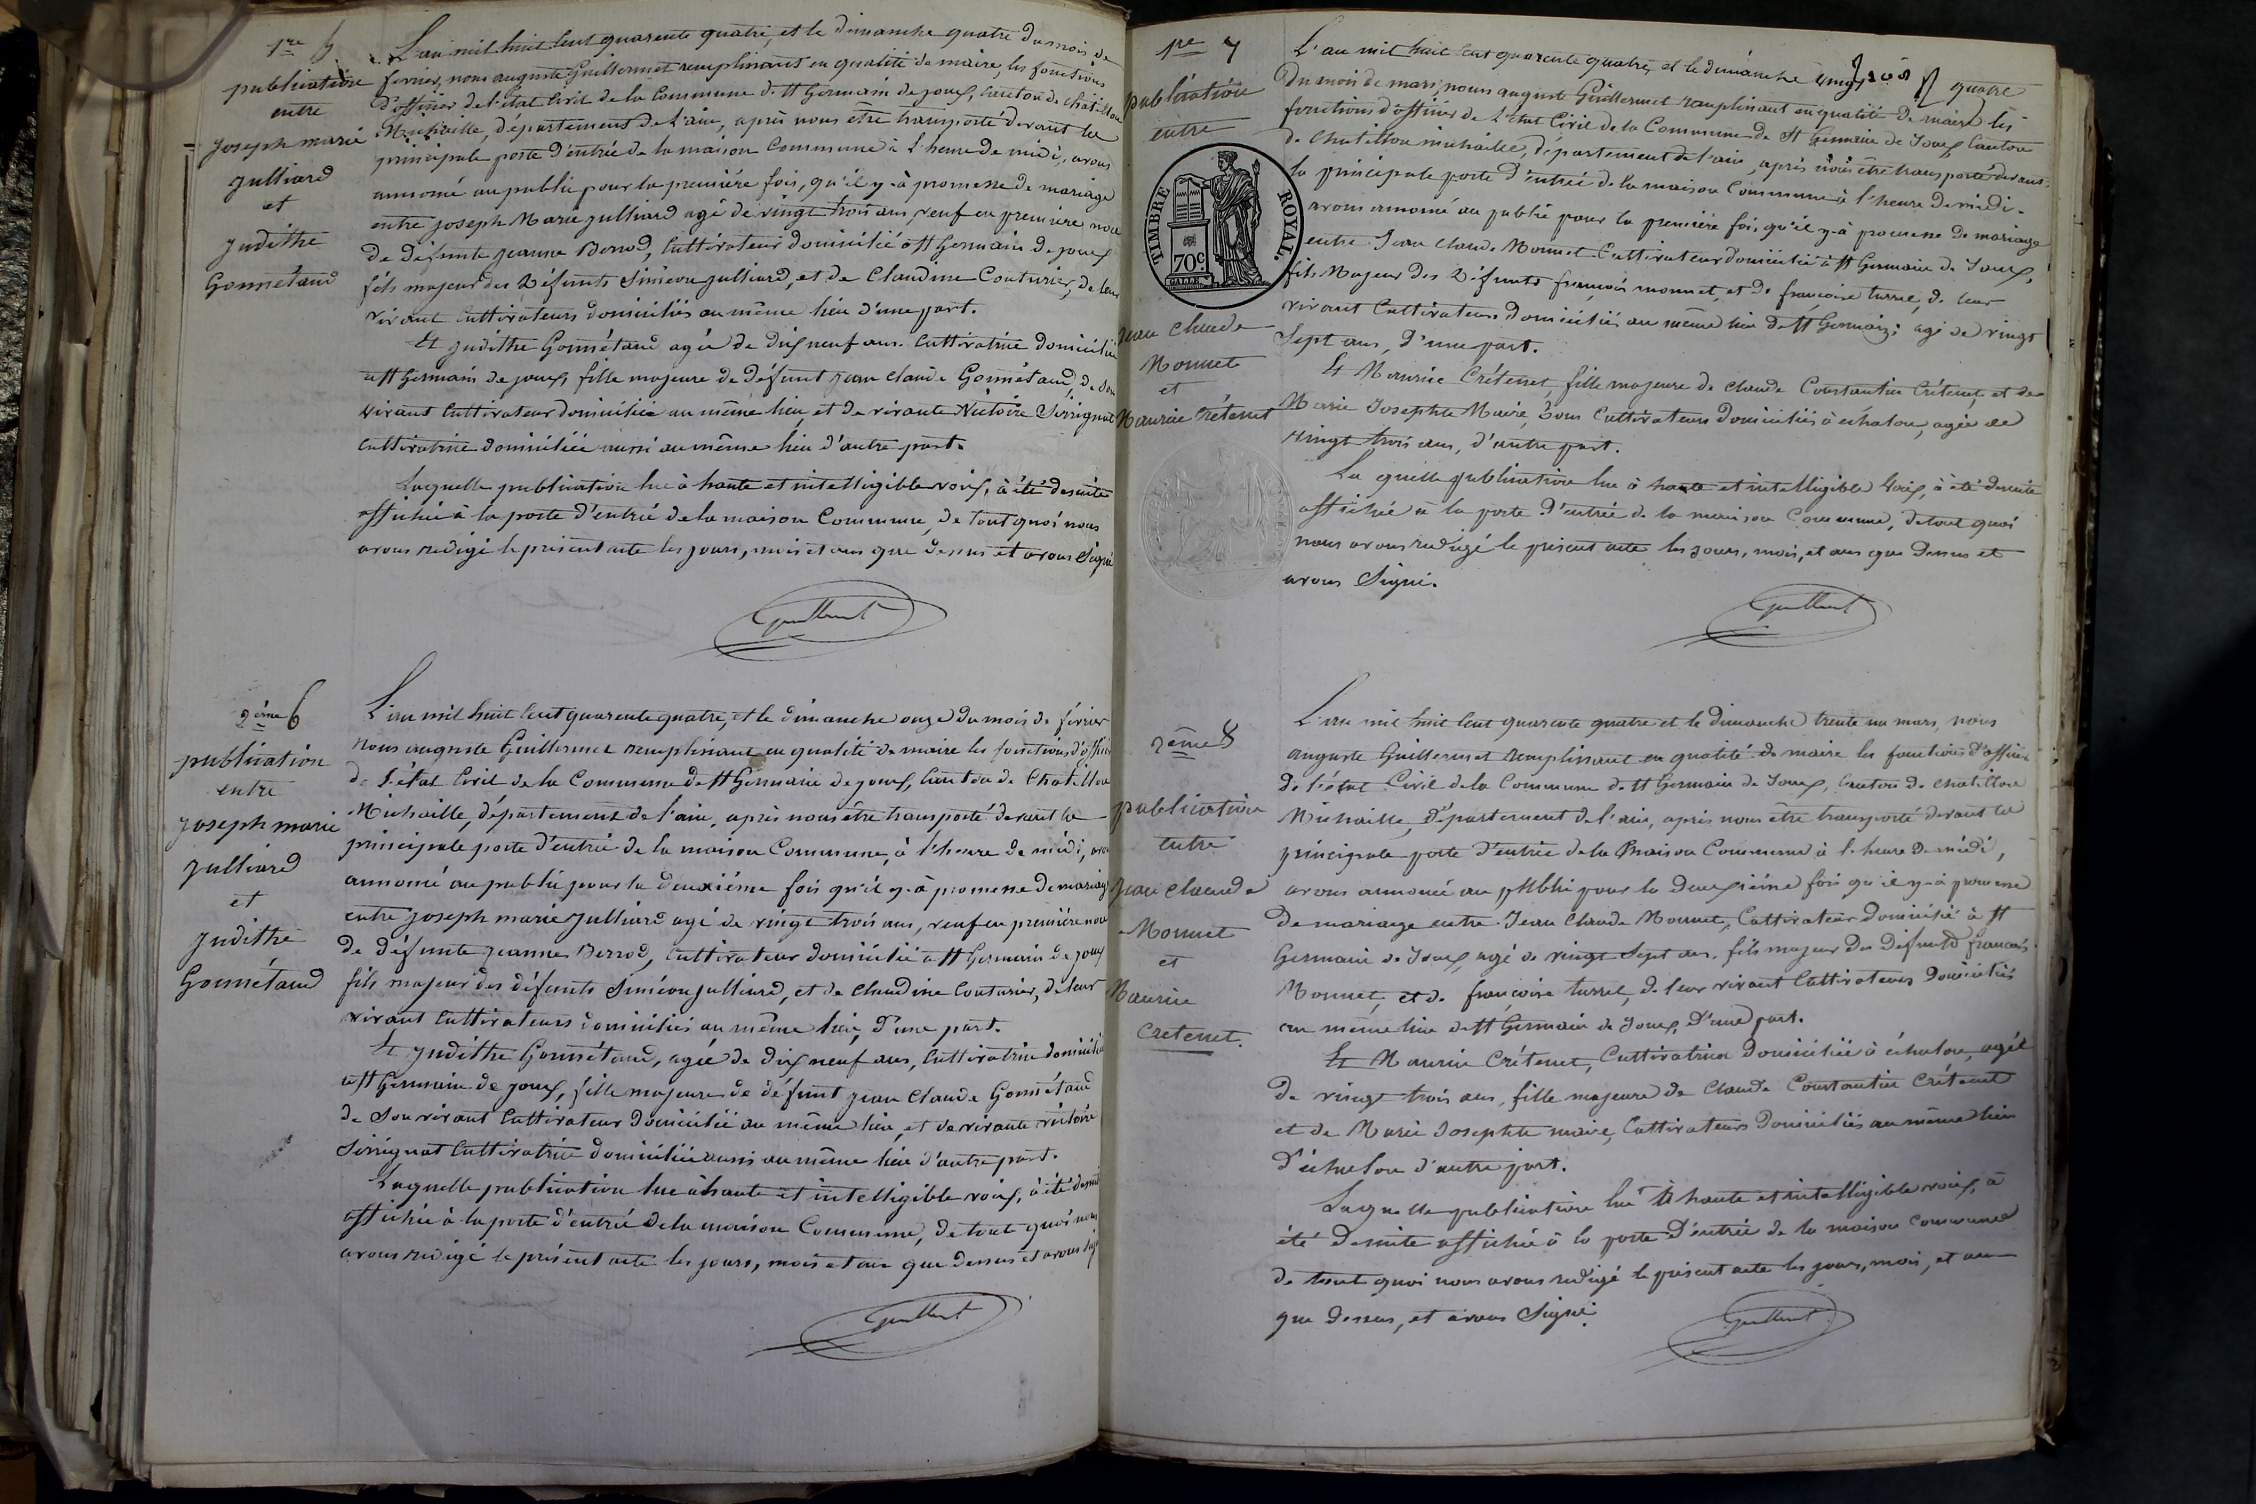 1re 5
publication
entre
joseph marie
julliard
et
judithe
Gonnétand
L'an mil huit cent quarente quatre, et le dimanche quatre du mois de
fevrier, nous auguste Guillermet remplissant en qualité de maire, les fonctions
d'officier de l'état Civil de la Commune de St Germain de joux, canton de chatillon
Michaille, département de l'ain, après nous être transporté devant la
principale porte d'entrée de la maison Commune à l'heure de midi, avons
annoncé au public pour la première fois, qu'il y-à promesse de mariage
entre joseph Marie julliard agé de vingt trois ans, veuf en première noce
de défunte jeanne Berrod, Cultivateur domicilié à St Germain de joux
fils majeur des Défunts Siméon julliard, et de Claudine Couturier, de leur
vivant Cultivateurs domiciliés au même lieu d'une part.
Et judithe Gonnétand agée de dix neuf ans. Cultivatrice domiciliée
à St Germain de joux, fille majeure de défunt jean claude Gonnétand, de son
vivant Cultivateur domicilié au même lieu, et de vivante Victoire Sirrignat
Cultivatrice domiciliée aussi au même lieu d'autre part.
Laquelle publication lue à haute et intelligible voix, à été desuite
affichée à la porte d'entrée de la maison Commune, de tout quoi nous
avons redigé le présent acte les jours, mois et ans que dessus et avons signé
Guillermet
2ème 6
publication
entre
joseph marie
julliard
et
judithe
Gonnétand
L'an mil huit Cent quarente quatre, et le dimanche onze du mois de février
nous auguste Guillermet remplissant en qualité de maire les fonctions d'officier
de l'état Civil de la Commune de St Germain de joux, Canton de Chatillon
Michaille, département de l'ain, après nous être transporté devant la
principale porte d'entrée de la maison Commune, à l'heure de midi, avons
annoncé au public pour la deuxième fois qu'il y-à promesse de mariage
entre joseph marie julliard agé de vingt trois ans, veuf en première noce
de défunte jeanne Berrod, Cultivateur domicilié à St Germain de joux
fils majeur des défunts Siméon julliard, et de Claudine Couturier, de leur
vivant Cultivateurs domiciliés au même lieu, d'une part.
Et judithe Gonnétand, agée de dix neuf ans, Cultivatrice domiciliée
à St Germain de joux, fille majeure de défunt jean Claude Gonnétand
de son vivant Cultivateur domicilié au même lieu, et de vivante victoire
Sirrignat Cultivatrice domiciliée aussi au même lieu d'autre part.
Laquelle publication lue à haute et intelligible voix, à été desuite
affichée à la porte d'entrée de la maison Commune, de tout quoi nous
avons redigé le présent acte les jours, mois et an que dessus et avons signé
Guillermet
1re 7
publication
entre
TIMBRE ROYAL.
70c.
jean claude
Monnet
et
Maurise Crétenet
L'an mil huit cent quarente quatre, et le dimanche vingt quatre
du mois de mars, nous auguste Guillermet remplissant en qualité de maire les
fonctions d'officier de l'état Civil de la Commune de St Germain de Joux Canton
de Chatillon michaille, département de l'ain, après nous être transporté devant
la principale porte d'entrée de la maison Commune à l'heure de midi.
avons annoncé au public pour la première fois, qu'il y-à promesse de mariage
entre Jean Claude Monnet Cultivateur domicilié à St Germain de Joux,
fils Majeur des Défunts françois monnet, et de françoise turrel, de leur
vivant Cultivateurs domiciliés au même lieu de St Germain; agé de vingt
Sept ans, d'une part.
Et Maurise Crétenet, fille majeure de claude Constantin Crétenet et de
Marie Josephte Maire, tous Cultivateurs domiciliés à échalon, agée de
vingt trois ans, d'autre part.
La quelle publication lue à haute et intelligible Voix, à été desuite
affichée à la porte d'entrée de la maison Commune, de tout quoi
nous avons redigé le présent acte les jours, mois, et ans que dessus et
avons Signé.
Guillermet
2ème 8
publication
entre
jean claude
Monnet
et
Maurise
Cretenet.
L'an mil huit Cent quarente quatre et le dimanche trente un mars, nous
auguste Guillermet remplissant en qualité de maire les fonctions d'officier
de l'état Civil de la Commune de St Germain de Joux, Canton de chatillon
Michaille, département de l'ain, après nous être transporté devant la
principale porte d'entrée de la Maison Commune à l'heure de midi,
avons annoncé au public pour la deuxième fois qu'il y-à promesse
de mariage entre Jean Claude Monnet, Cultivateur domicilié à St
Germain de Joux, agé de vingt Sept ans, fils majeur des défunts françois
Monnet, et de françoise turrel, de leur vivant Cultivateurs domiciliés
au même lieu de St Germain de Joux, d'une part.
Et Maurise Crétenet, Cultivatrice domiciliée à échalon, agée
de vingt trois ans, fille majeure de Claude Constantin Crétenet
et de Marie Josephte maire, Cultivateurs domiciliés au même lieu
d'échalon d'autre part.
Laquelle publication lue à haute et intelligible voix, à
été desuite affichée à la porte d'entrée de la maison commune
de tout quoi nous avons redigé le présent acte les jours, mois, et an
que dessus, et avons Signé.
Guillermet